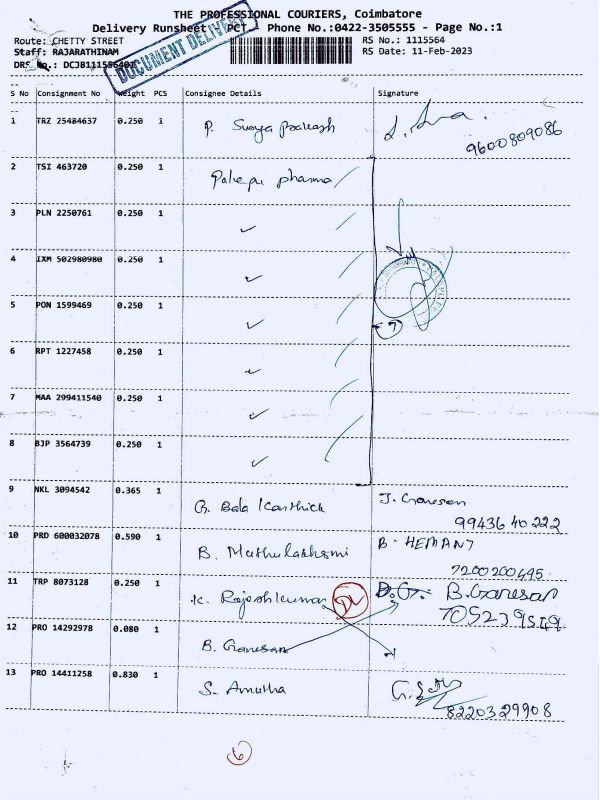 THE PROFESSIONAL COURIERS, Coimbatore
Delivery Runsheet PCT - Phone No.:0422-3505555 - Page No.:1
Route: CHETTY STREET RS No.: 1115564
Staff: RAJARATHINAM RS Date: 11-Feb-2023
DRS No.: DCJB111556401
DOCUMENT DELIVERY
S No Consignment No Weight PCS Consignee Details Signature
1 TRZ 25484637 0.250 1 P. Surya Prakash
9600809086
2 TSI 463720 0.250 1 pharma
3 PLN 2250761 0.250 1 ✓
4 IXM 502980980 0.250 1 ✓
5 PON 1599469 0.250 1 ✓
(7)
6 RPT 1227458 0.250 1 ✓
7 MAA 299411540 0.250 1 ✓
8 BJP 3564739 0.250 1 ✓
9 NKL 3094542 0.365 1 G. Bala Karthick J. Ganesan
99436 40 222
10 PRD 600032078 0.590 1 B. Muthulakhsmi B. HEMANT
7200200495
11 TRP 8073128 0.250 1 K. Rajeshkumar B. Ganesan
12 PRO 14292978 0.080 1 B. Ganesan
13 PRO 14411258 0.830 1 S. Amutha
8220329908
6